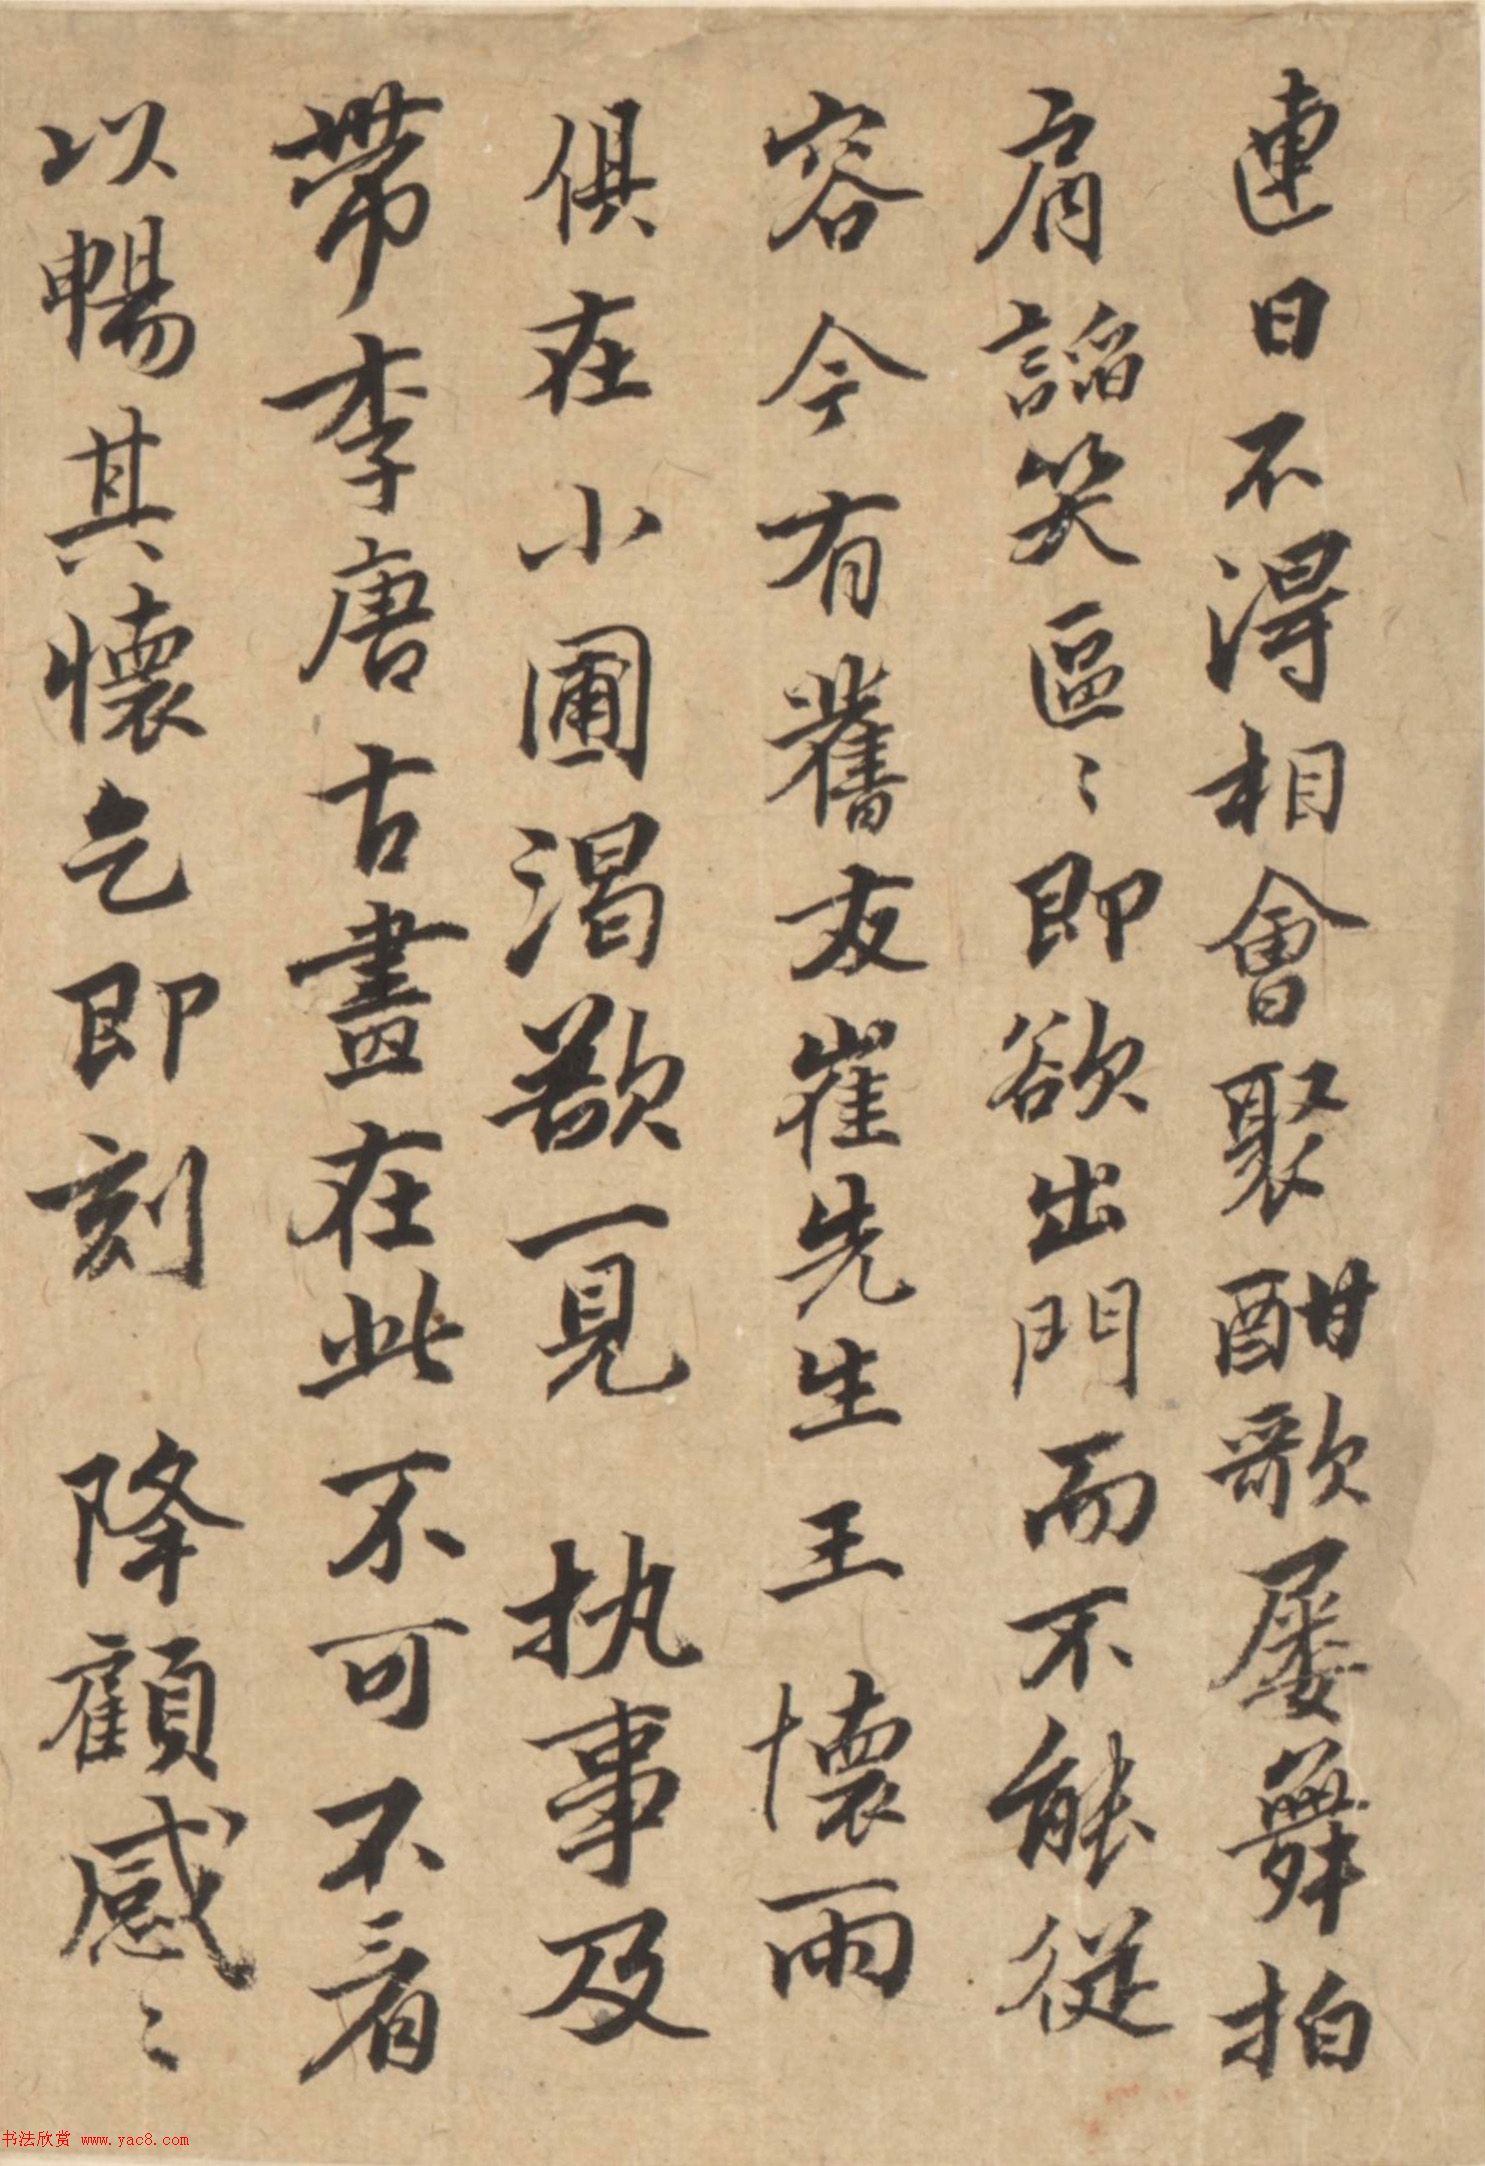 連日不得相會聚酣歌屡舞拍
肩謟笑區〻即欲出門而不能從
容今有舊友崔先生王懷雨
俱在小圃渴欲一見 执事及
帶李唐古畫在此不可不看
以暢其懷乞即刻 降顧感〻
书法欣赏 www.yac8.com